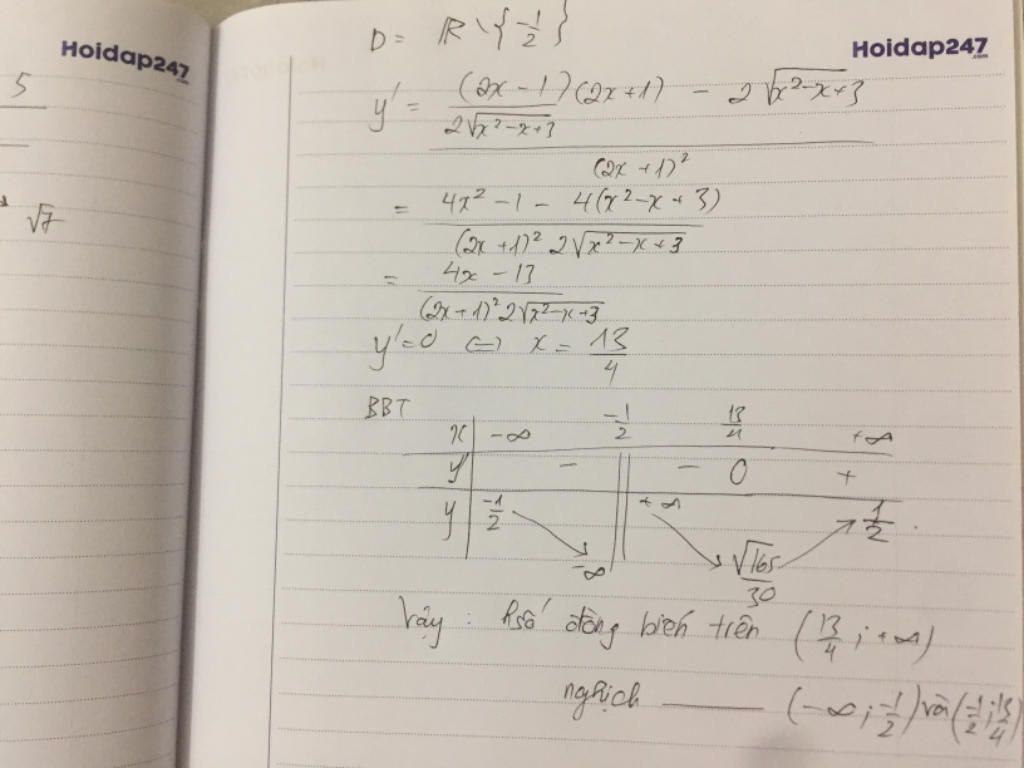 Hoidap247.com
5
√7
Hoidap247.com
D = ℝ \ {-1/2}
y' = ((2x - 1)/(2√(x² - x + 3)) (2x + 1) - 2√(x² - x + 3))/(2x + 1)²
= (4x² - 1 - 4(x² - x + 3))/((2x + 1)² 2√(x² - x + 3))
= (4x - 13)/((2x + 1)² 2√(x² - x + 3))
y' = 0 ⇔ x = 13/4
BBT
x | -∞ -1/2 13/4 +∞
y' | - || - 0 +
y | -1/2 ↘ -∞ || +∞ ↘ √165/30 ↗ 1/2
Vậy : hsố đồng biến trên (13/4 ; +∞)
nghịch —— (-∞ ; -1/2) và (-1/2 ; 13/4)